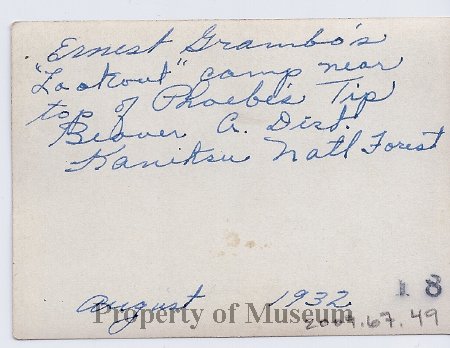 Ernest Grambo's
"Lookout" camp near
top of Phoebe's Tip
Beaver Cr. Dist.
Kaniksu Natl Forest
August 1932
18
Property of Museum
2004.67.49